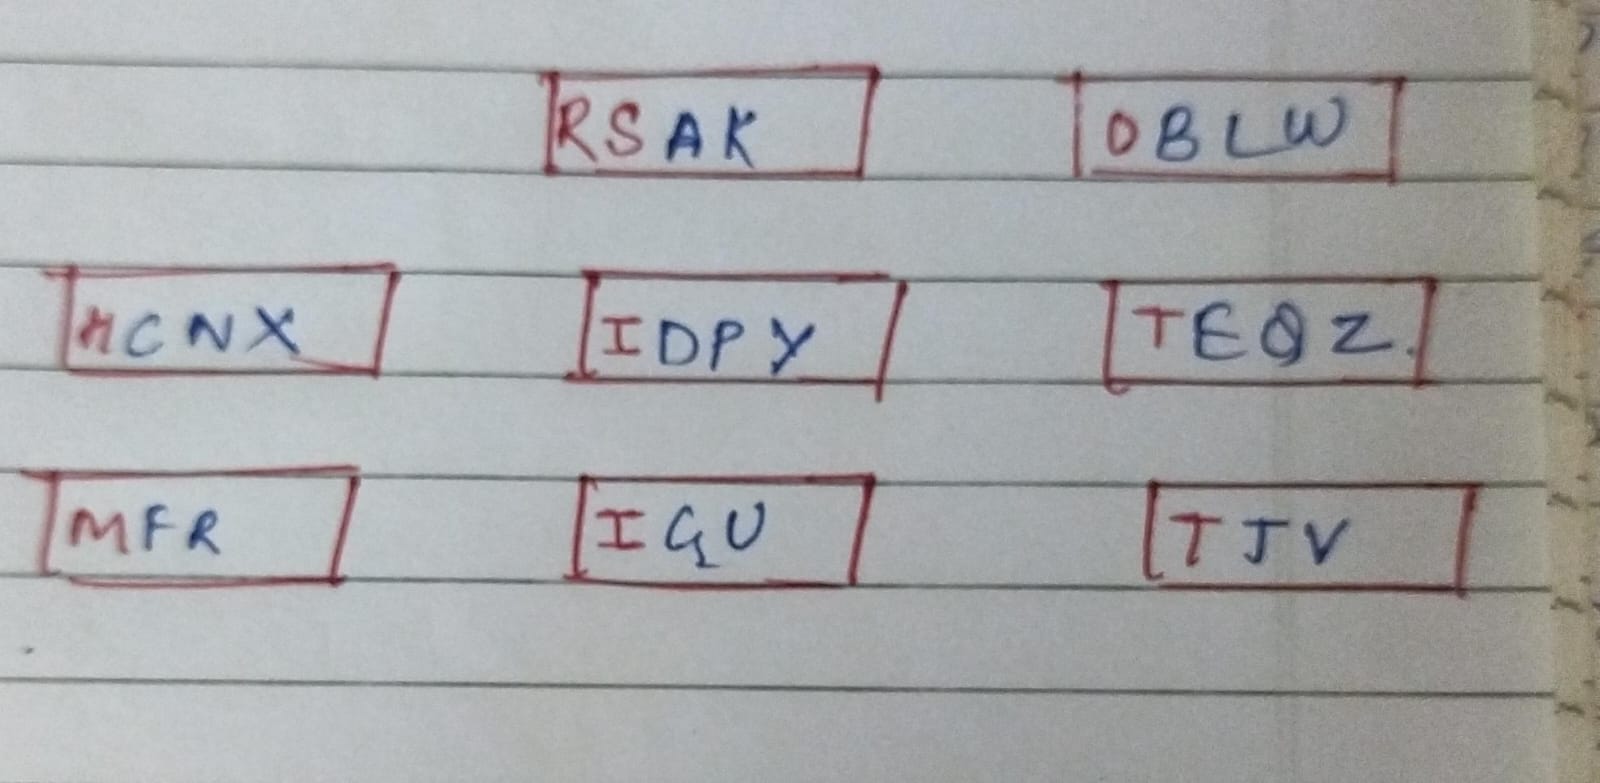 RSAK OBLW
HCNX IDPY TEQZ.
MFR IGU TJV